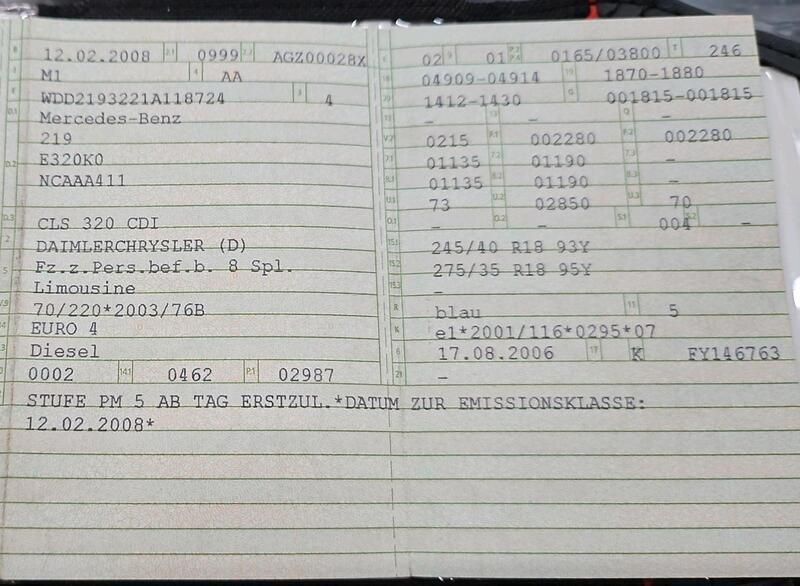 12.02.2008 2.1 0999 2.2 AGZ00028X
M1 4 AA
WDD2193221A118724 3 4
Mercedes-Benz
219
E320K0
NCAAA411
CLS 320 CDI
DAIMLERCHRYSLER (D)
Fz.z.Pers.bef.b. 8 Spl.
Limousine
70/220*2003/76B
EURO 4
Diesel
0002 14.1 0462 P.1 02987
02 9 01 P.2 P.4 0165/03800 T 246
18 04909-04914 19 1870-1880
20 1412-1430 G 001815-001815
12 - 13 - Q -
V.7 0215 F.1 002280 F.2 002280
7.1 01135 7.2 01190 7.3 -
8.1 01135 8.2 01190 8.3 -
U.1 73 U.2 02850 U.3 70
O.1 - O.2 - S.1 004 S.2 -
15.1 245/40 R18 93Y
15.2 275/35 R18 95Y
15.3 -
R blau 11 5
K e1*2001/116*0295*07
6 17.08.2006 17 K FY146763
21 -
STUFE PM 5 AB TAG ERSTZUL.*DATUM ZUR EMISSIONSKLASSE:
12.02.2008*